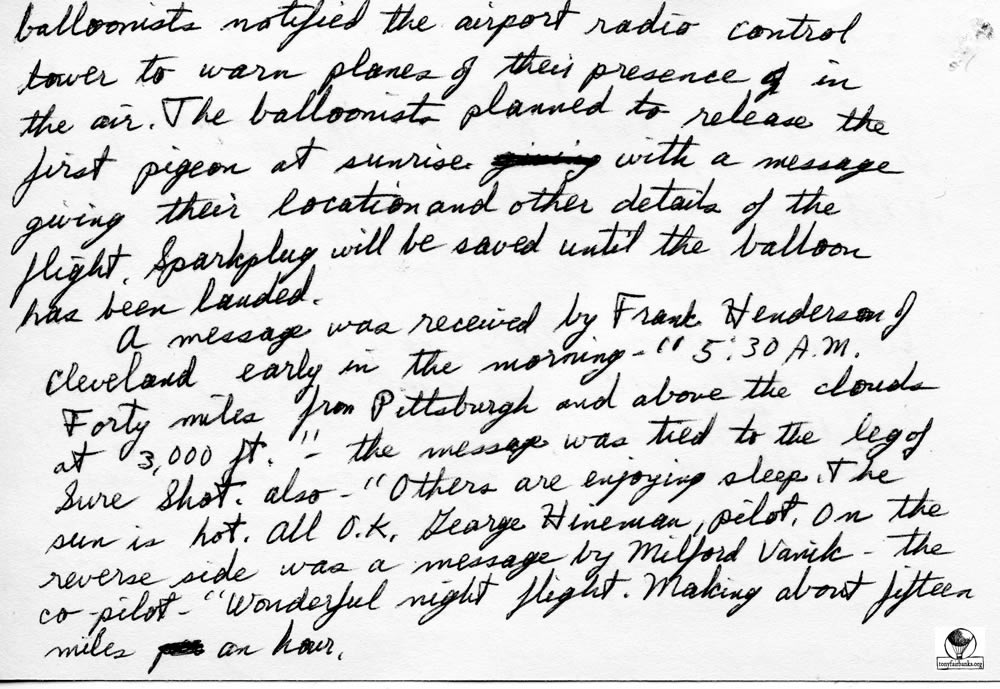 balloonists notified the airport radio control
tower to warn planes of their presence in
the air. The balloonists planned to release the
first pigeon at sunrise with a message
giving their location and other details of the
flight. Sparkplug will be saved until the balloon
has been landed.
A message was received by Frank Henderson of
Cleveland early in the morning - "5:30 A.M.
Forty miles from Pittsburgh and above the clouds
at 3,000 ft." - the message was tied to the leg of
Sure Shot. also - "Others are enjoying sleep. The
sun is hot. All O.K. George Hineman, pilot. On the
reverse side was a message by Milford Vanik - the
co-pilot - "Wonderful night flight. Making about fifteen
miles an hour.
tonyfairbanks.org